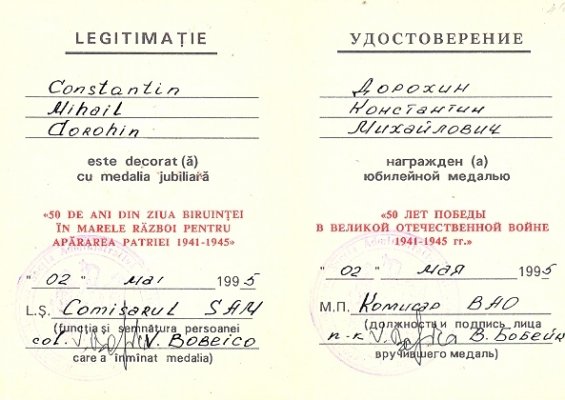 LEGITIMAȚIE
Constantin
Mihail
Dorohin
este decorat (ă)
cu medalia jubiliară
«50 DE ANI DIN ZIUA BIRUINȚEI
ÎN MARELE RĂZBOI PENTRU
APĂRAREA PATRIEI 1941-1945»
"02" mai 1995
L.Ș. Comisarul SAM
(funcția și semnătura persoanei
col. V. Bobeico
care a înmînat medalia)
УДОСТОВЕРЕНИЕ
Дорохин
Константин
Михайлович
награжден (а)
юбилейной медалью
«50 ЛЕТ ПОБЕДЫ
В ВЕЛИКОЙ ОТЕЧЕСТВЕННОЙ ВОЙНЕ
1941-1945 гг.»
"02" мая 1995
М.П. Комисар ВАО
(должность и подпись лица
п-к В. Бобейк
вручившего медаль)